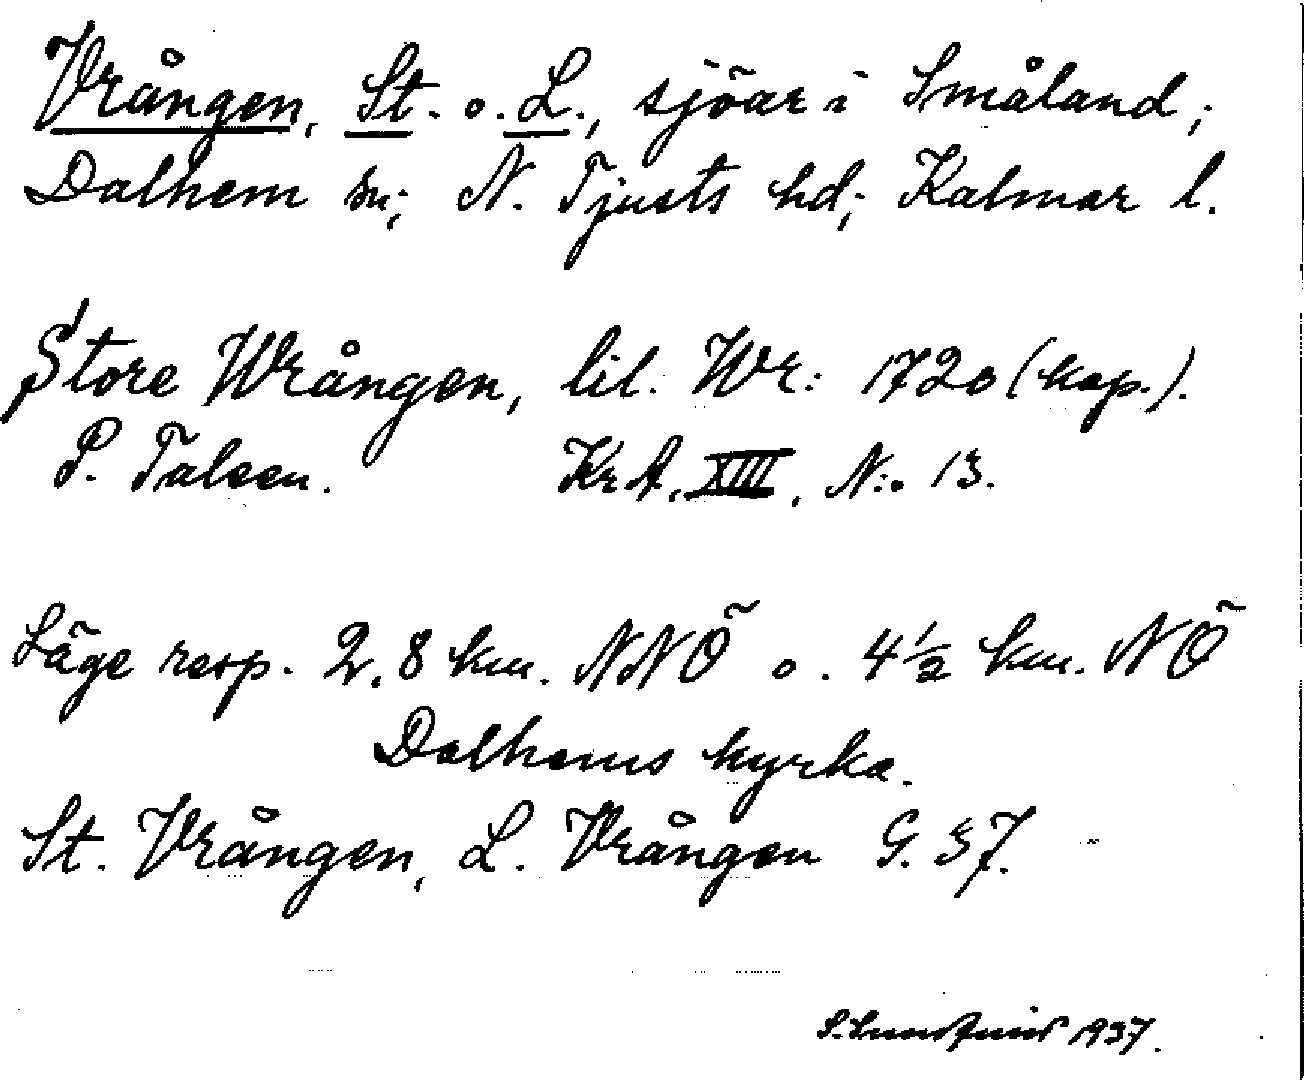 Vrången, St. o. L., sjöar i Småland;
Dalhem sn; N. Tjusts hd; Kalmar l.
Store Wrången, lil. Wr: 1720 (kop.).
P. Talsen. KrA. XIII, N:o 13.
Läge resp. 2,8 km. NNÖ o. 4½ km. NÖ
Dalhems kyrka.
St. Vrången, L. Vrången G. 37.
1937.